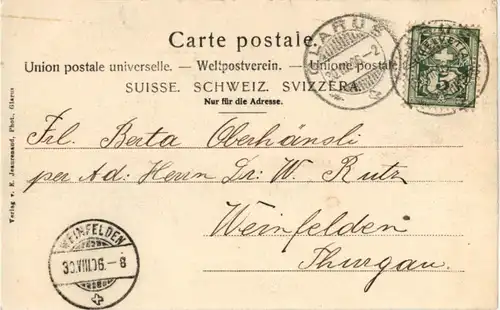 Carte postale.
Union postale universelle. — Weltpostverein. — Unione postale
SUISSE. SCHWEIZ. SVIZZERA.
Nur für die Adresse.
GLARUS
5
Frl. Berta Oberhänsli
per Ad: Herrn Dr: W. Rutz
Weinfelden
Thurgau.
WEINFELDEN
Verlag v. E. Jeanrenaud, Phot. Glarus